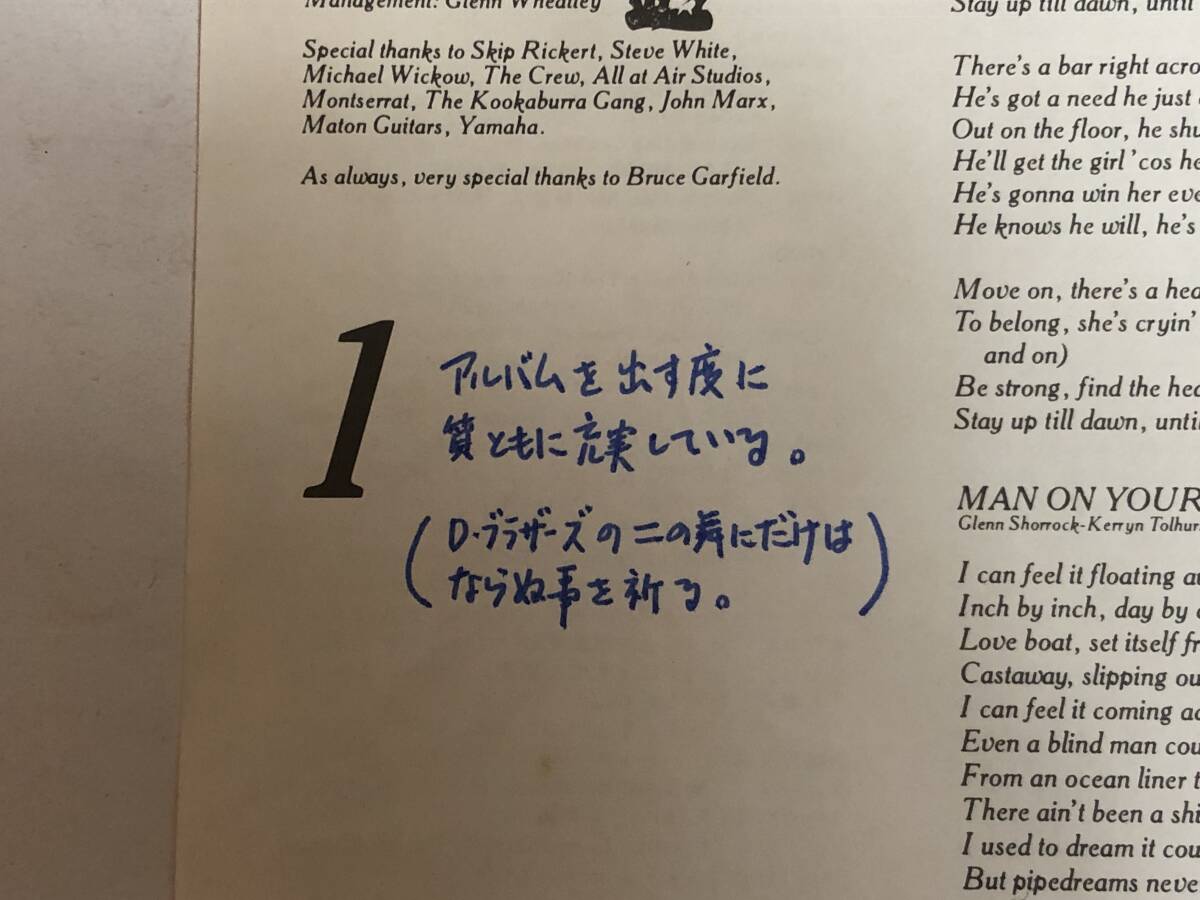 Management: Glenn Wheatley
Special thanks to Skip Rickert, Steve White,
Michael Wickow, The Crew, All at Air Studios,
Montserrat, The Kookaburra Gang, John Marx,
Maton Guitars, Yamaha.
As always, very special thanks to Bruce Garfield.
1
アルバムを出す度に
質ともに充実している。
(D・ブラザーズの二の舞にだけは
ならぬ事を祈る。)
Stay up till dawn, until
There's a bar right acro
He's got a need he just
Out on the floor, he shu
He'll get the girl 'cos he
He's gonna win her eve
He knows he will, he's
Move on, there's a hea
To belong, she's cryin'
and on)
Be strong, find the hea
Stay up till dawn, until
MAN ON YOUR
Glenn Shorrock-Kerryn Tolhur
I can feel it floating a
Inch by inch, day by
Love boat, set itself fr
Castaway, slipping ou
I can feel it coming a
Even a blind man cou
From an ocean liner t
There ain't been a shi
I used to dream it cou
But pipedreams neve